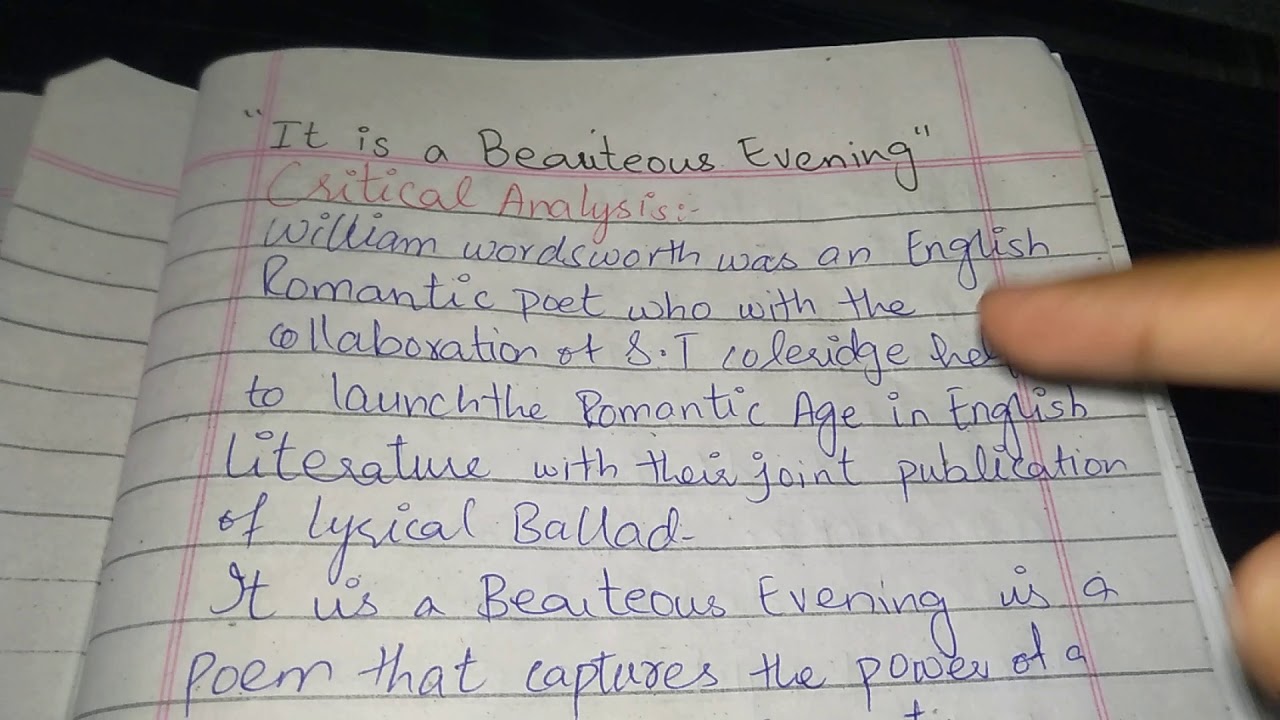 "It is a Beauteous Evening"
Critical Analysis:-
William wordsworth was an English
Romantic poet who with the
collaboration of S.T coleridge
to launch the Romantic Age in English
literature with their joint publication
of lyrical Ballad-
It is a Beauteous Evening is a
poem that captures the power of a